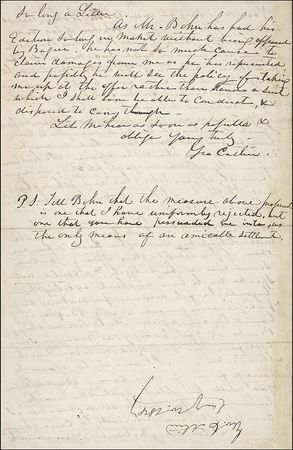 So long a Letter.
As Mr. Bohn has had his
Edition so long in Market without being opposed
by Bogue, he has not so much cause to
claim damages from me as he has represented
and possibly he will see the policy of taking
me up at the offer rather than have a suit
which I shall soon be able to conduct, &
disposed to carry through.
Let me hear as soon as possible &
oblige Yours truly
Geo Catlin.
P.S. Tell Bohn that the measure above proposed
is one that I have uniformly rejected, but
one that you have persuaded me into, as
the only means of an amicable settlemt.